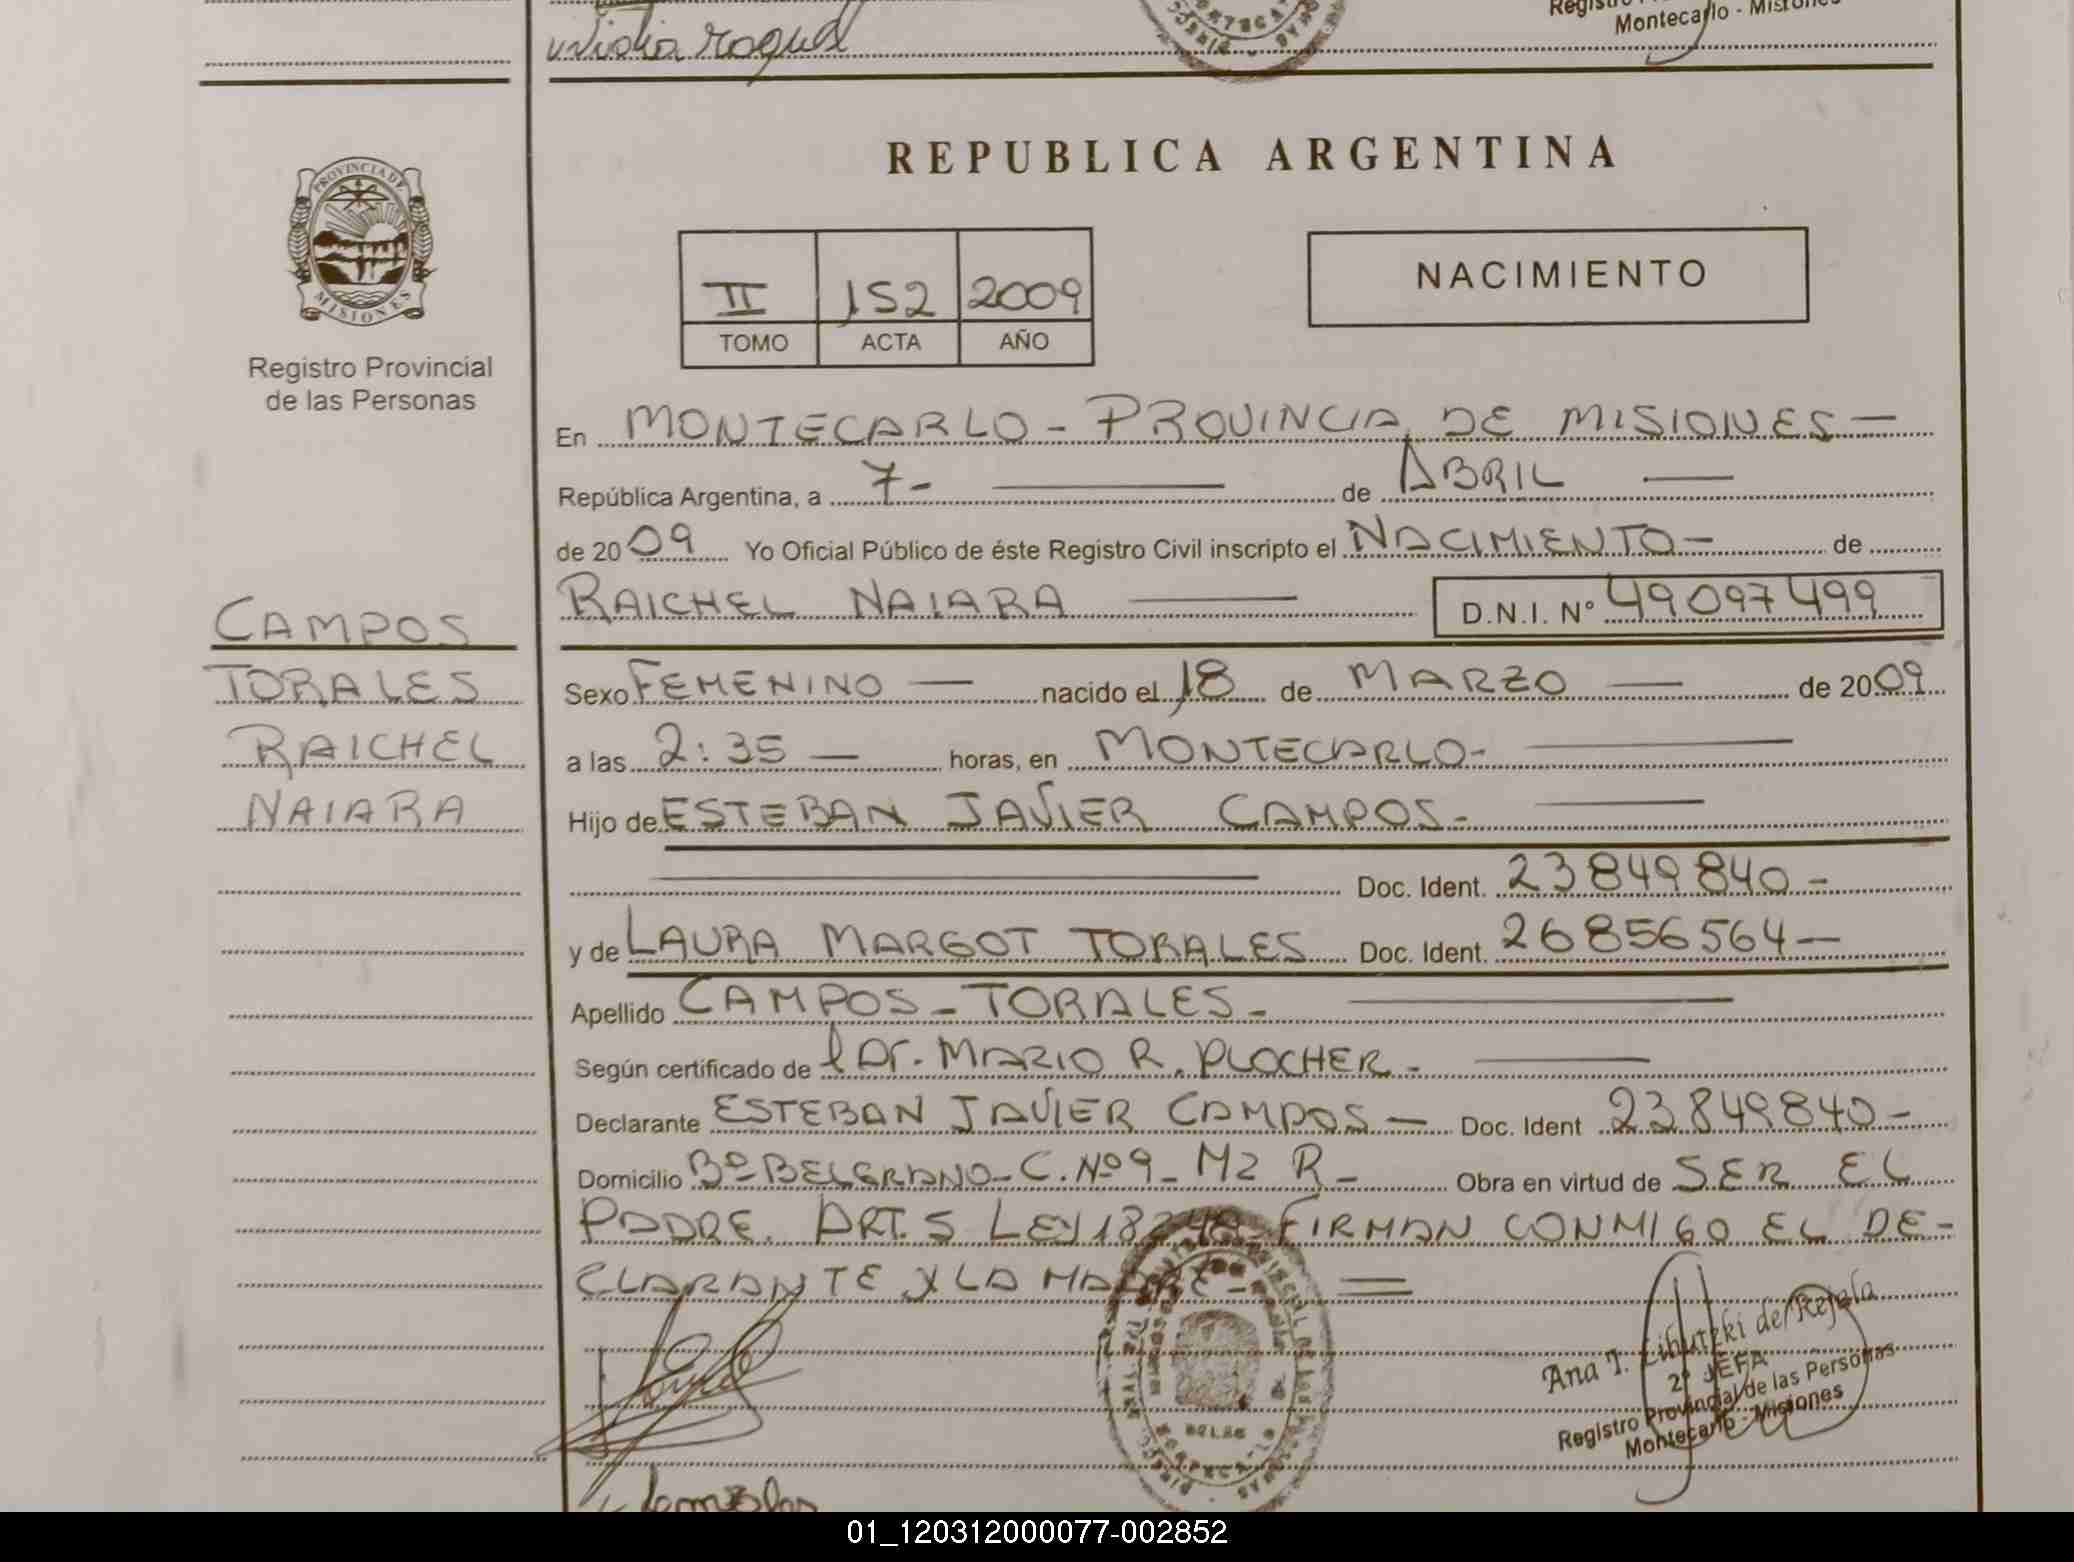 Registro
Montecarlo - Misiones
REPUBLICA ARGENTINA
PROVINCIA DE
MISIONES
Registro Provincial
de las Personas
II 152 2009
TOMO ACTA AÑO
NACIMIENTO
En MONTECARLO - PROVINCIA DE MISIONES —
República Argentina, a 7 - — de ABRIL —
de 2009 Yo Oficial Público de éste Registro Civil inscripto el NACIMIENTO - de
RAICHEL NAIARA — D.N.I. N° 49097499
CAMPOS
TORALES
RAICHEL
NAIARA
Sexo FEMENINO — nacido el 18 de MARZO — de 2009
a las 2:35 — horas, en MONTECARLO - —
Hijo de ESTEBAN JAVIER CAMPOS - —
— Doc. Ident. 23849840 -
y de LAURA MARGOT TORALES Doc. Ident. 26856564 —
Apellido CAMPOS - TORALES - —
Según certificado de l Dr. MARIO R. PLOCHER - —
Declarante ESTEBAN JAVIER CAMPOS — Doc. Ident 23849840 -
Domicilio Bº BELGRANO - C. Nº 9 - Mz R - Obra en virtud de SER EL
PADRE. ART. 5 LEY 18248 FIRMAN CONMIGO EL DE-
CLARANTE Y LA MADRE - =
Ana T. Lihutzki de Rejala
2° JEFA
Registro Provincial de las Personas
Montecarlo - Misiones
01_120312000077-002852